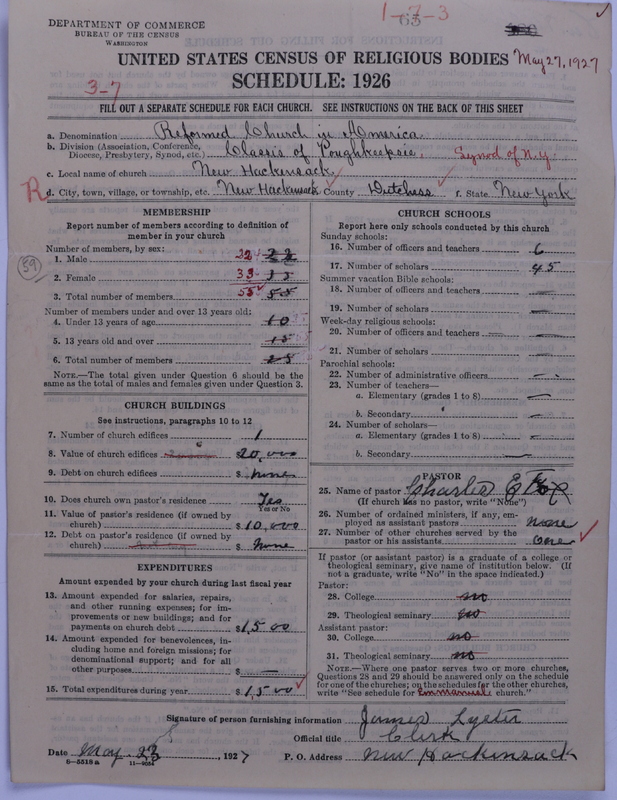 1-7-3
65
DEPARTMENT OF COMMERCE
BUREAU OF THE CENSUS
WASHINGTON
UNITED STATES CENSUS OF RELIGIOUS BODIES May 27, 1927
SCHEDULE: 1926
3-7
FILL OUT A SEPARATE SCHEDULE FOR EACH CHURCH. SEE INSTRUCTIONS ON THE BACK OF THIS SHEET
a. Denomination Reformed Church in America
b. Division (Association, Conference, Diocese, Presbytery, Synod, etc.) Classis of Poughkeepsie, Synod of N.Y
c. Local name of church New Hackensack
R d. City, town, village, or township, etc. New Hackensack County Dutchess f. State New York
MEMBERSHIP
Report number of members according to definition of
member in your church
Number of members, by sex:
1. Male 22 22
59
2. Female 33 33
3. Total number of members 55 55
Number of members under and over 13 years old:
4. Under 13 years of age 10
5. 13 years old and over 15
6. Total number of members 25
NOTE.—The total given under Question 6 should be
same as the total of males and females given under Question 3.
CHURCH BUILDINGS
See instructions, paragraphs 10 to 12
7. Number of church edifices 1
8. Value of church edifices $ 20,000
9. Debt on church edifices $ none
10. Does church own pastor's residence Yes
Yes or No
11. Value of pastor's residence (if owned by
church) $ 10,000
12. Debt on pastor's residence (if owned by
church) $ none
EXPENDITURES
Amount expended by your church during last fiscal year
13. Amount expended for salaries, repairs,
and other running expenses; for im-
provements or new buildings; and for
payments on church debt $ 1,500
14. Amount expended for benevolences, in-
cluding home and foreign missions; for
denominational support; and for all
other purposes $ —
15. Total expenditures during year $ 1,500
CHURCH SCHOOLS
Report here only schools conducted by this church
Sunday schools:
16. Number of officers and teachers 6
17. Number of scholars 45
Summer vacation Bible schools:
18. Number of officers and teachers —
19. Number of scholars —
Week-day religious schools:
20. Number of officers and teachers —
21. Number of scholars —
Parochial schools:
22. Number of administrative officers —
23. Number of teachers—
a. Elementary (grades 1 to 8) —
b. Secondary —
24. Number of scholars—
a. Elementary (grades 1 to 8) —
b. Secondary —
PASTOR
25. Name of pastor Charles E Fox
(If church has no pastor, write "None")
26. Number of ordained ministers, if any, em-
ployed as assistant pastors none
27. Number of other churches served by the
pastor or his assistants one
If pastor (or assistant pastor) is a graduate of a college or
theological seminary, give name of institution below. (If
not a graduate, write "No" in the space indicated.)
Pastor:
28. College no
29. Theological seminary no
Assistant pastor:
30. College no
31. Theological seminary no
NOTE.—Where one pastor serves two or more churches,
Questions 28 and 29 should be answered only on the schedule
for one of the churches; on the schedules for the other churches,
write "See schedule for Emmanuel church."
Signature of person furnishing information James Lyster
Official title Clerk
Date May 23, 1927 P. O. Address New Hackensack
8—5518 a 11—9054